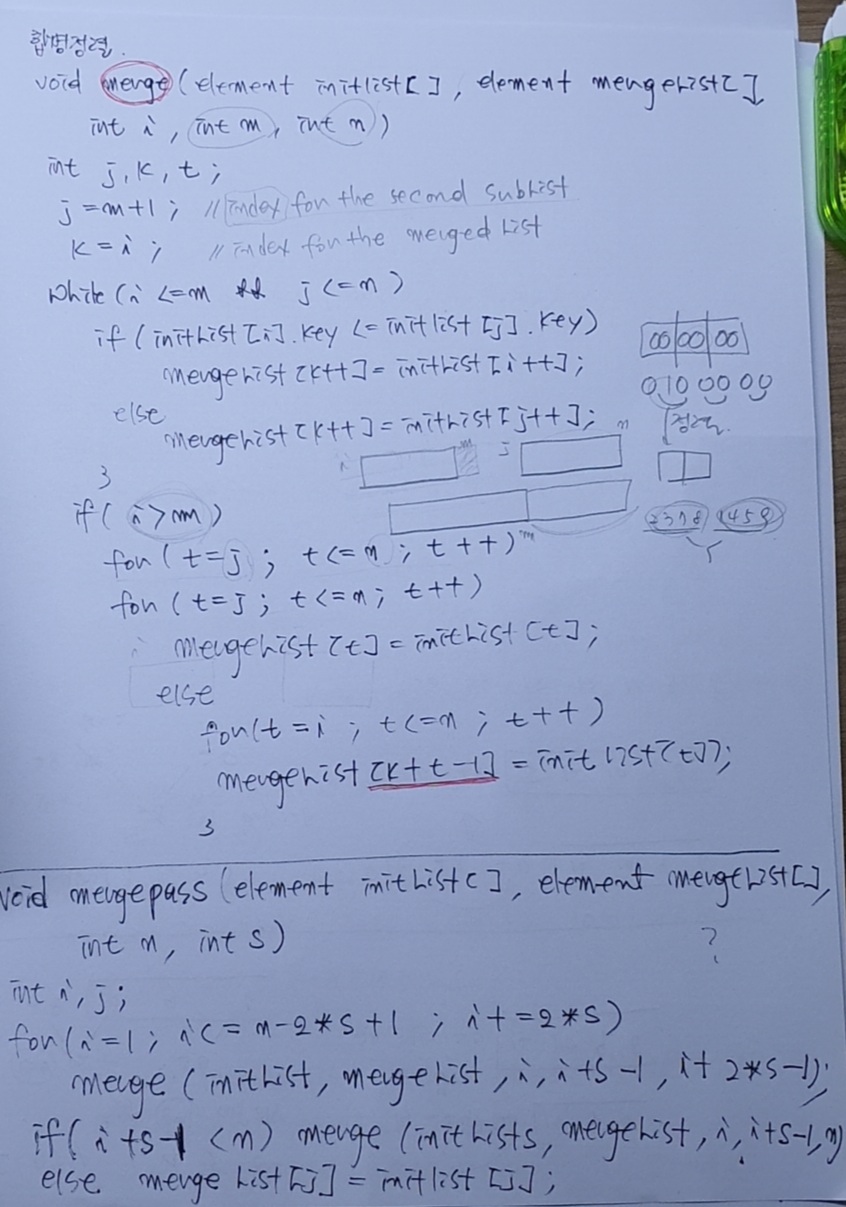 합병정렬.
void merge(element initlist[], element mergeList[],
int i, int m, int n)
int j, k, t;
j = m+1; // index for the second sublist
k = i; // index for the merged List
while (i <= m && j <= n)
if (initList[i].key <= initlist[j].key)
mergeList[k++] = initList[i++];
else
mergeList[k++] = initList[j++];
}
if( i > m)
for (t=j; t<=n; t++)
for (t=j; t<=n; t++)
mergeList[t] = initList[t];
else
for(t=i; t<=n; t++)
mergeList[k+t-1] = init list[t]);
}
00 00 00
010 00 00
정렬
i m j n
m
2378 1459
void mergepass(element initList[], element mergeList[],
int n, int s)
?
int i, j;
for(i=1; i<= n-2*s+1; i+=2*s)
merge (initList, mergeList, i, i+s-1, i+2*s-1);
if( i+s-1 <n) merge (initLists, mergeList, i, i+s-1, n)
else merge List[j] = initlist[j];